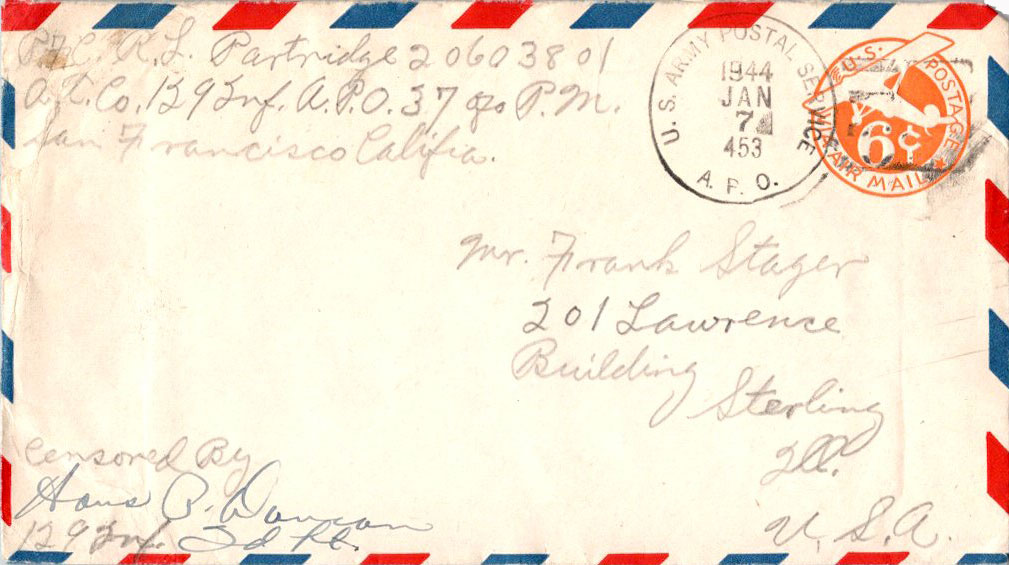 Pfc. R. L. Partridge 20603801
A.T. Co. 129 Inf. A.P.O. 37 c/o P.M.
San Francisco Califia.
U.S. ARMY POSTAL SERVICE
1944
JAN
7
453
A.P.O.
U.S. POSTAGE
6¢
AIR MAIL
Mr. Frank Stager
201 Lawrence
Building
Sterling
Ill.
U.S.A.
Censored By
129 Inf.